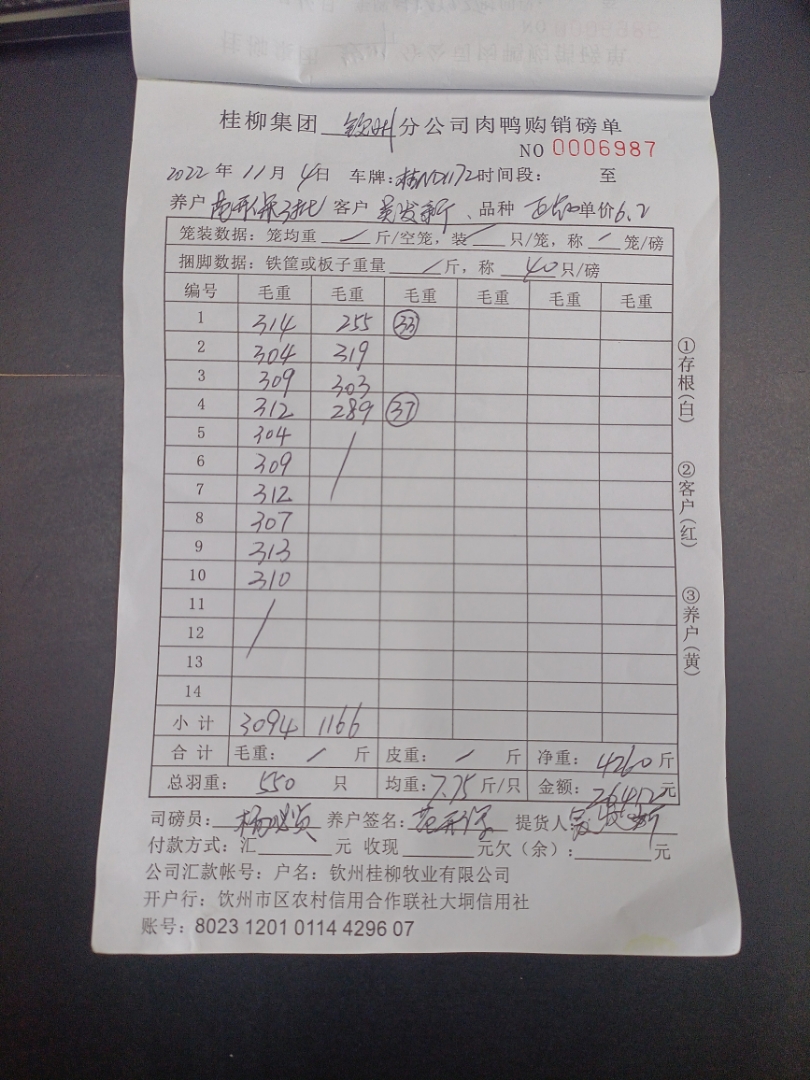 桂柳集团 钦州 分公司肉鸭购销磅单
NO 0006987
2022 年 11 月 4 日 车牌: 172 时间段: 至
养户 客户 、品种 单价 6.2
笼装数据: 笼均重 / 斤/空笼, 装 / 只/笼, 称 / 笼/磅
捆脚数据: 铁筐或板子重量 / 斤, 称 40 只/磅
编号 毛重 毛重 毛重 毛重 毛重 毛重
1 314 255 33
2 304 319
3 309 303
4 312 289 37
5 304 /
6 309
7 312
8 307
9 313
10 310
11 /
12
13
14
小计 3094 1166
合计 毛重: / 斤 皮重: / 斤 净重: 4260 斤
总羽重: 550 只 均重: 7.75 斤/只 金额: 26412 元
司磅员: 养户签名: 提货人:
付款方式: 汇 元 收现 元欠(余): 元
公司汇款帐号: 户名: 钦州桂柳牧业有限公司
开户行: 饮州市区农村信用合作联社大垌信用社
账号: 8023 1201 0114 4296 07
①存根(白)
②客户(红)
③养户(黄)